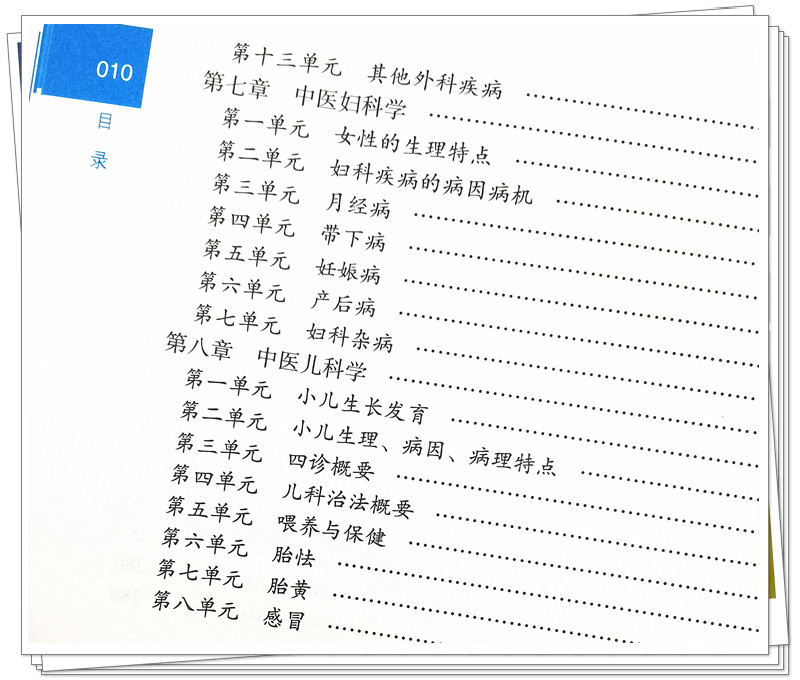 010
目
录
第十三单元 其他外科疾病
第七章 中医妇科学
第一单元 女性的生理特点
第二单元 妇科疾病的病因病机
第三单元 月经病
第四单元 带下病
第五单元 妊娠病
第六单元 产后病
第七单元 妇科杂病
第八章 中医儿科学
第一单元 小儿生长发育
第二单元 小儿生理、病因、病理特点
第三单元 四诊概要
第四单元 儿科治法概要
第五单元 喂养与保健
第六单元 胎怯
第七单元 胎黄
第八单元 感冒